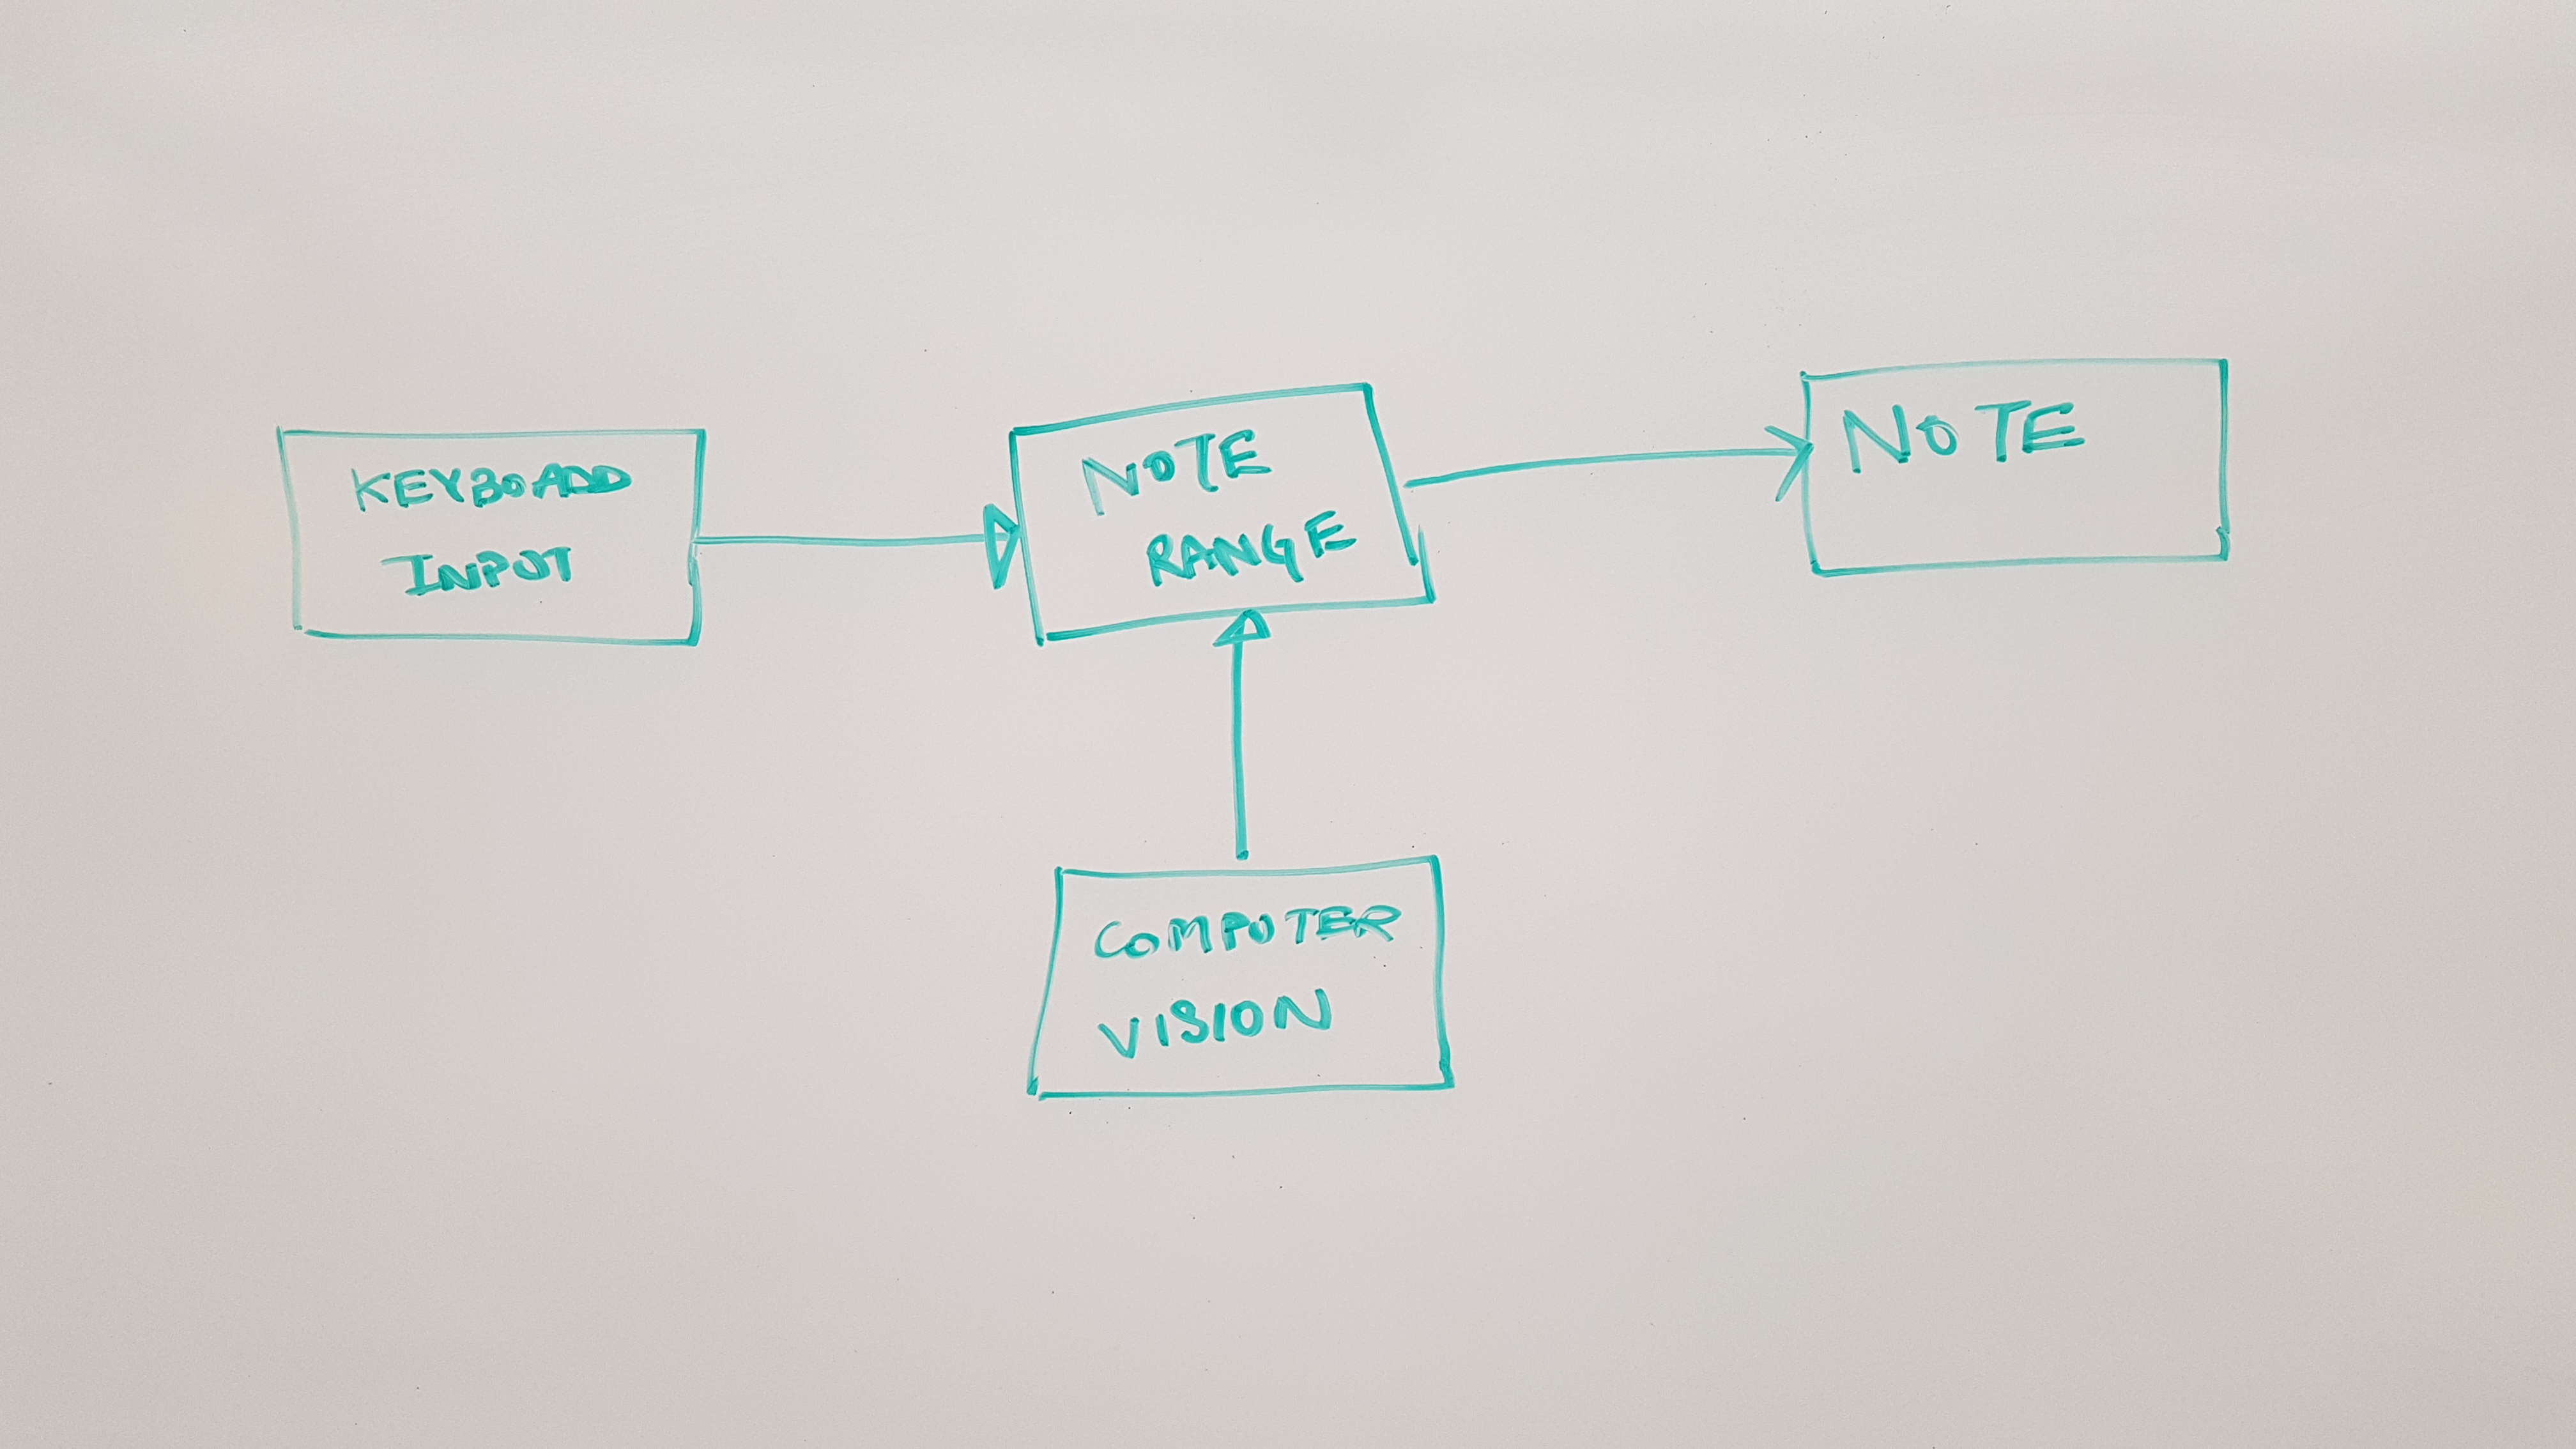 KEYBOADD
INPUT
NOTE
RANGE
NOTE
COMPUTER
VISION